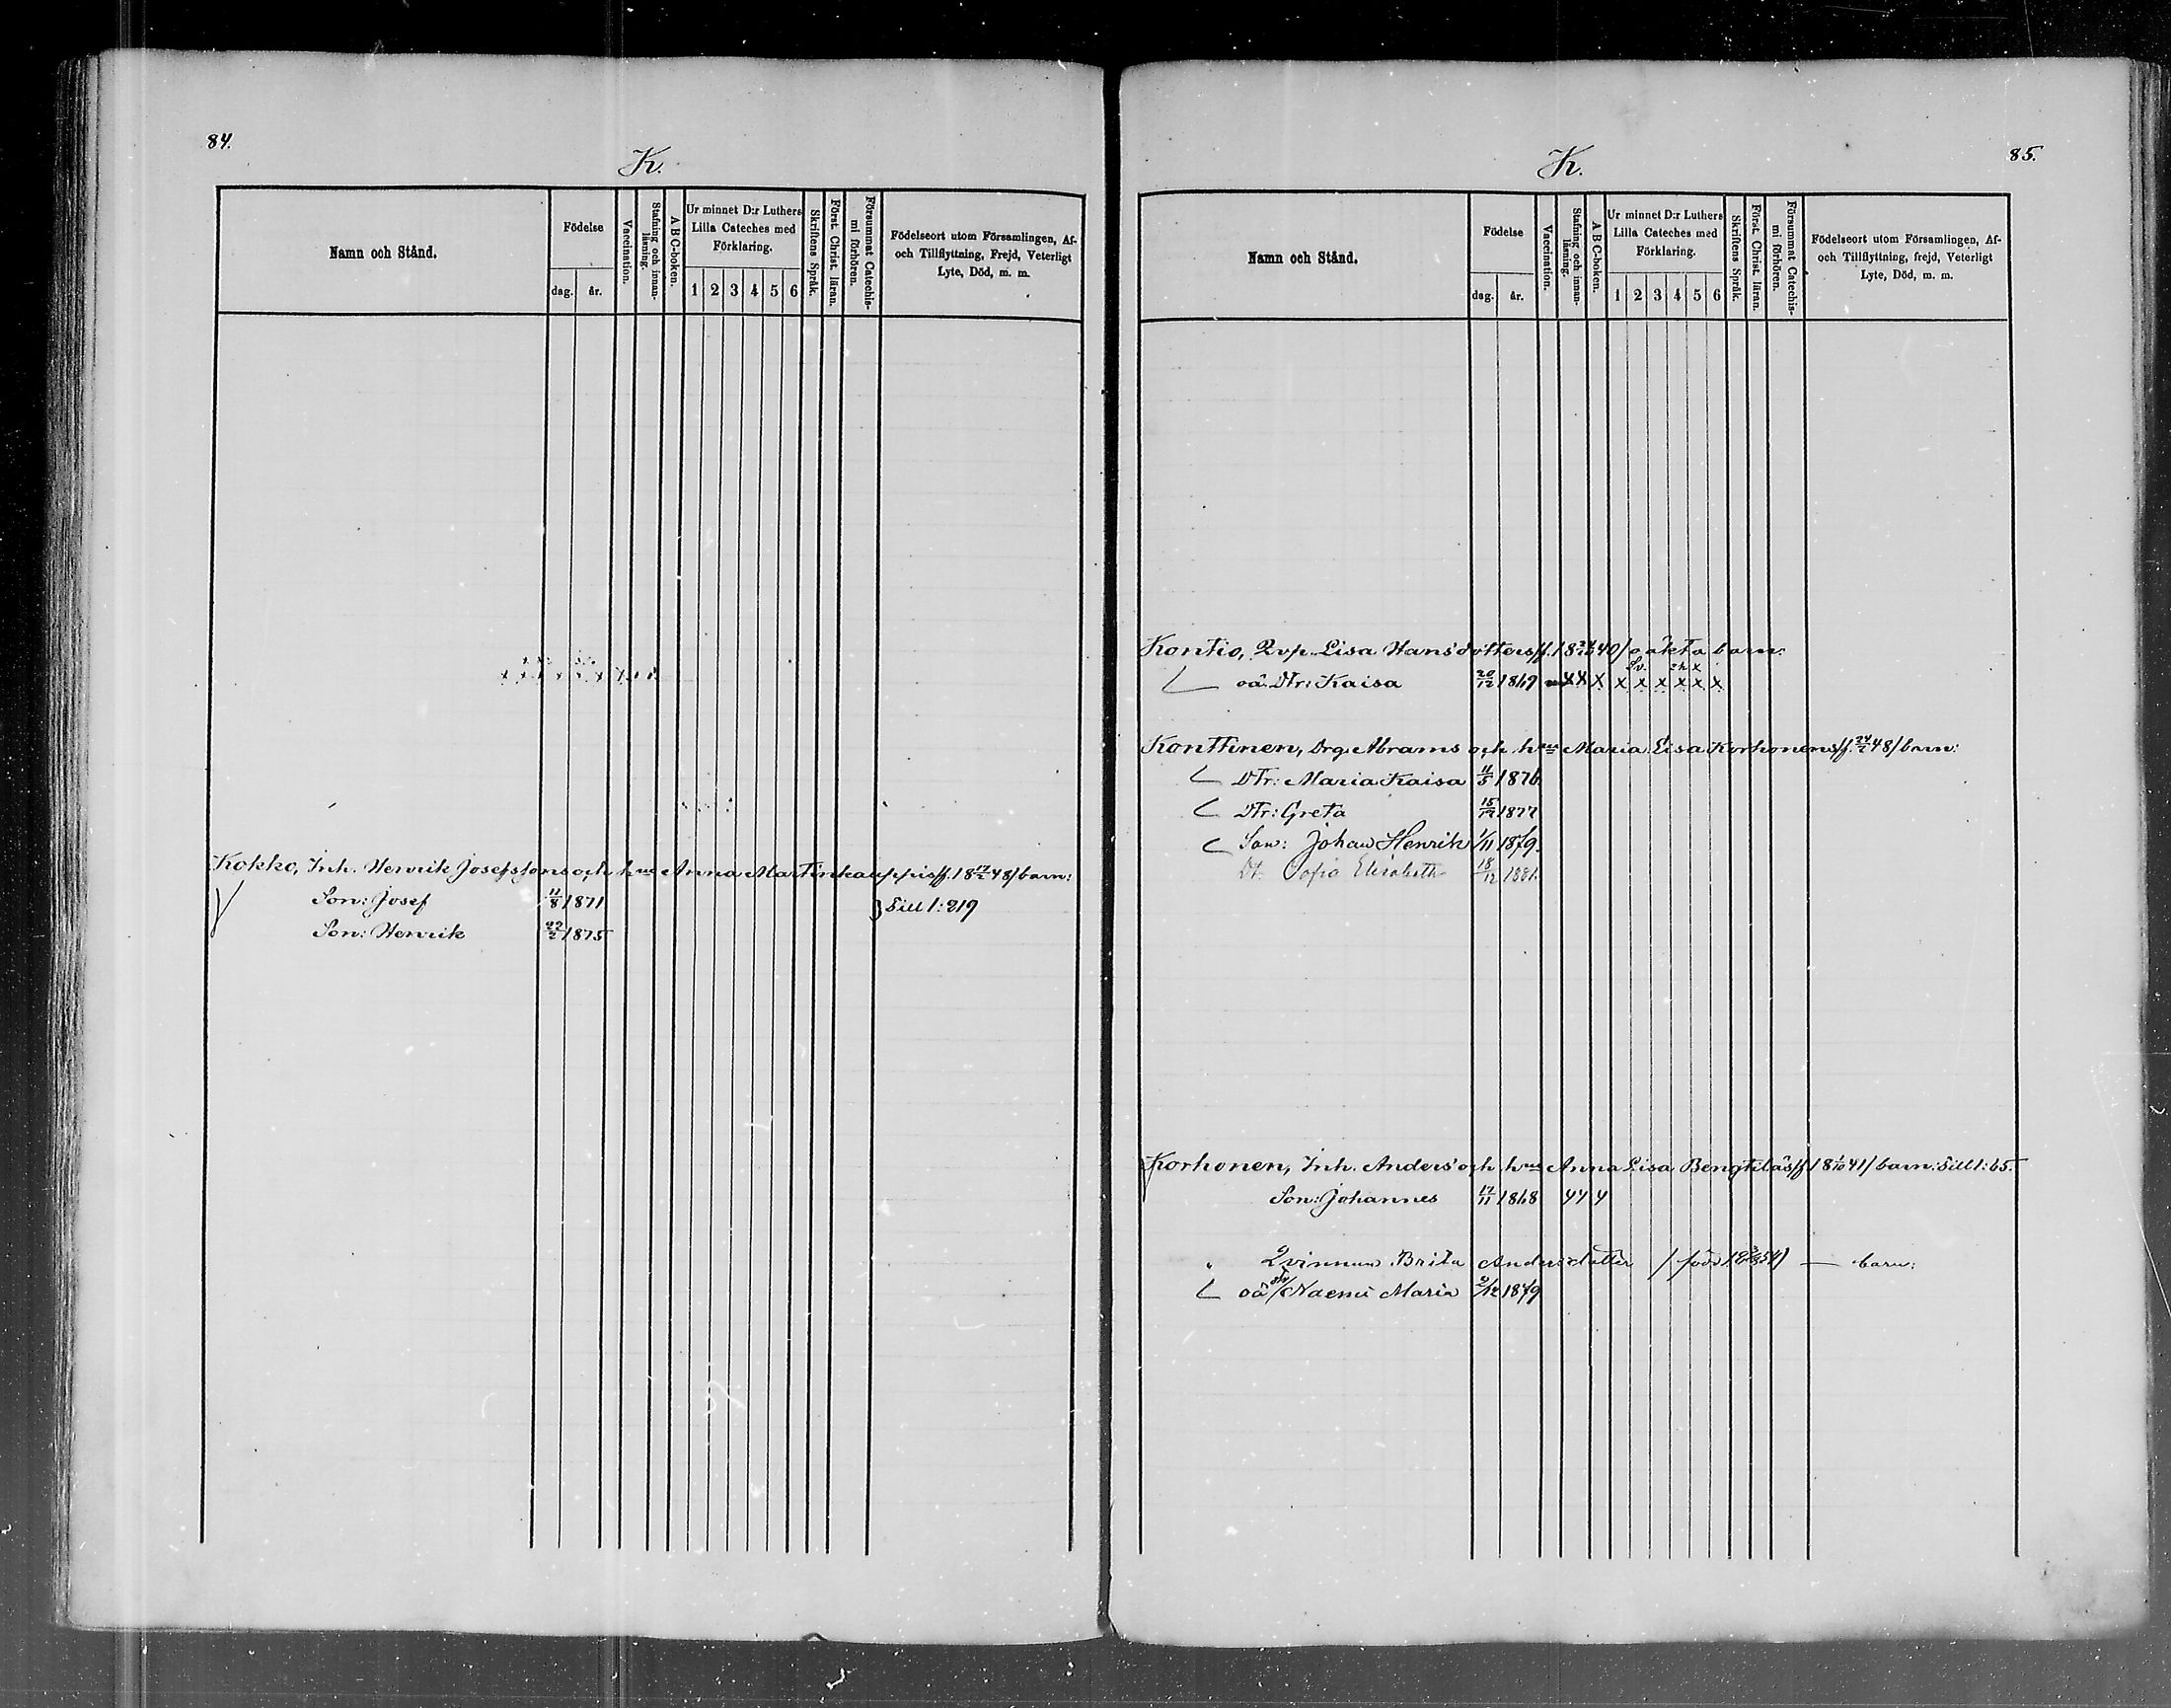 84.
K.
Namn och Stånd.
Födelse
dag.
år.
Vaccination.
Stafning och innan-
läsning.
A B C-boken.
Ur minnet D:r Luthers
Lilla Cateches med
Förklaring.
1 2 3 4 5 6
Skriftens Språk.
Först. Christ. läran.
Försummat Catechis-
mi förhören.
Födelseort utom Församlingen, Af-
och Tillflyttning, Frejd, Veterligt
Lyte, Död, m. m.
Kokko, Inh. Henrik Josefssons och hus Anna Martinkauppis /f. 18 17/2 48/ barn:
Son: Josef 11/8 1871 } Sill 1: 219
Son: Henrik 22/2 1875
85.
K.
Namn och Stånd.
Födelse
dag.
år.
Vaccination.
Stafning och innan-
läsning.
A B C-boken.
Ur minnet D:r Luthers
Lilla Cateches med
Förklaring.
1 2 3 4 5 6
Skriftens Språk.
Först. Christ. läran.
Försummat Catechis-
mi förhören.
Födelseort utom Församlingen, Af-
och Tillflyttning, frejd, Veterligt
Lyte, Död, m. m.
Kontio, Qvp. Lisa Hansdotters /f. 18 40/ oäkta barn:
oä. Dtr: Kaisa 20/12 1869 x x x x x x x x x
Konttinen, Drg. Abrams och hus Maria Lisa Korhonens /f. 24/2 48/ barn:
Dtr: Maria Kaisa 11/5 1876
Dtr: Greta 15/12 1877
Son: Johan Henrik 1/11 1879.
Dt. Sofia Elisabeth 18/12 1881.
Korhonen, Inh. Anders och hus Anna Lisa Bengtiläs /f. 18 1/10 41/ barn: Sill 1: 65.
Son: Johannes 17/11 1868
" Qvinnan Brita Andersdotter / född 18 54/ — barn:
oä dtr/ Naemi Maria 2/12 1879